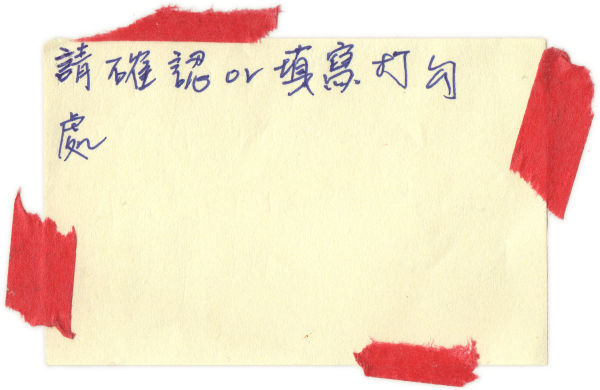 請確認or填寫打勾
處